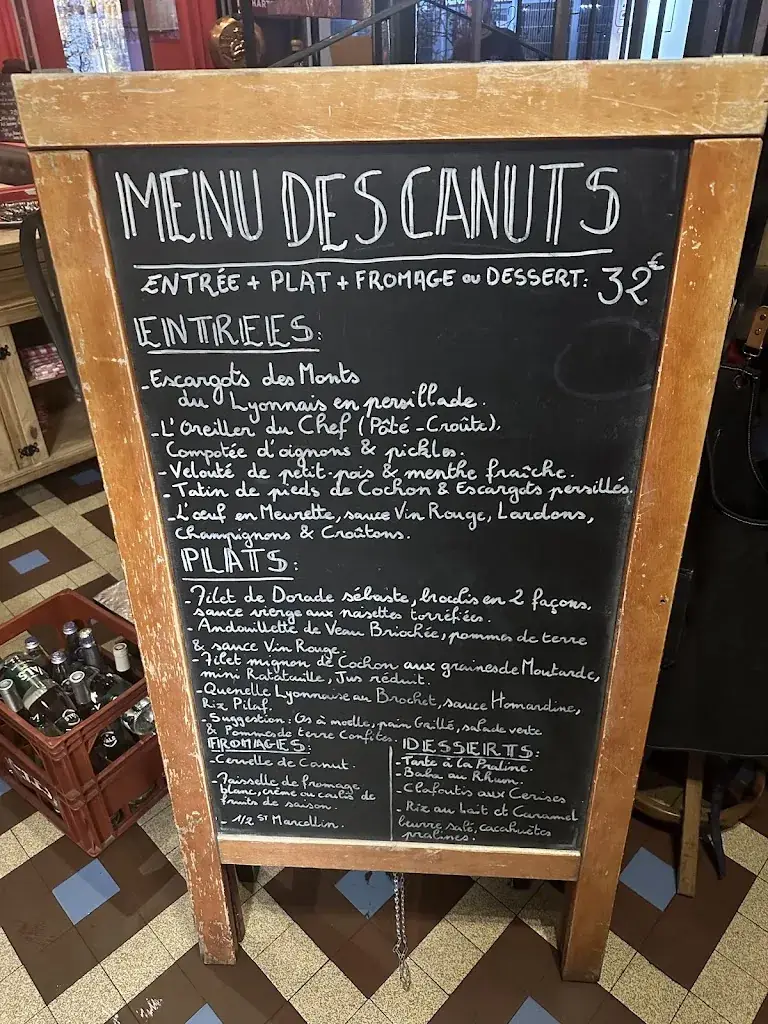 MENU DES CANUTS
ENTRÉE + PLAT + FROMAGE ou DESSERT: 32€
ENTREES:
-Escargots des Monts
du Lyonnais en persillade.
-L'Oreiller du Chef (Pâté-Croûte),
Compotée d'oignons & pickles.
-Velouté de petit-pois & menthe fraîche.
-Tatin de pieds de Cochon & Escargots persillés.
-L'œuf en Meurette, sauce Vin Rouge, Lardons,
Champignons & Croûtons.
PLATS:
-Filet de Dorade sébaste, brocolis en 2 façons,
sauce vierge aux noisettes torréfiées.
-Andouillette de Veau Briochée, pommes de terre
& sauce Vin Rouge.
-Filet mignon de Cochon aux graines de Moutarde,
mini Ratatouille, Jus réduit.
-Quenelle Lyonnaise au Brochet, sauce Homardine,
Riz Pilaf.
-Suggestion: Os à moelle, pain Grillé, salade verte
& Pommes de terre Confites.
FROMAGES:
-Cervelle de Canut.
-Faisselle de fromage
blanc, crème ou coulis de
fruits de saison.
-1/2 St Marcellin.
DESSERTS:
-Tarte à la Praline.
-Baba au Rhum.
-Clafoutis aux Cerises
-Riz au lait et Caramel
beurre salé, cacahuètes
pralinées.